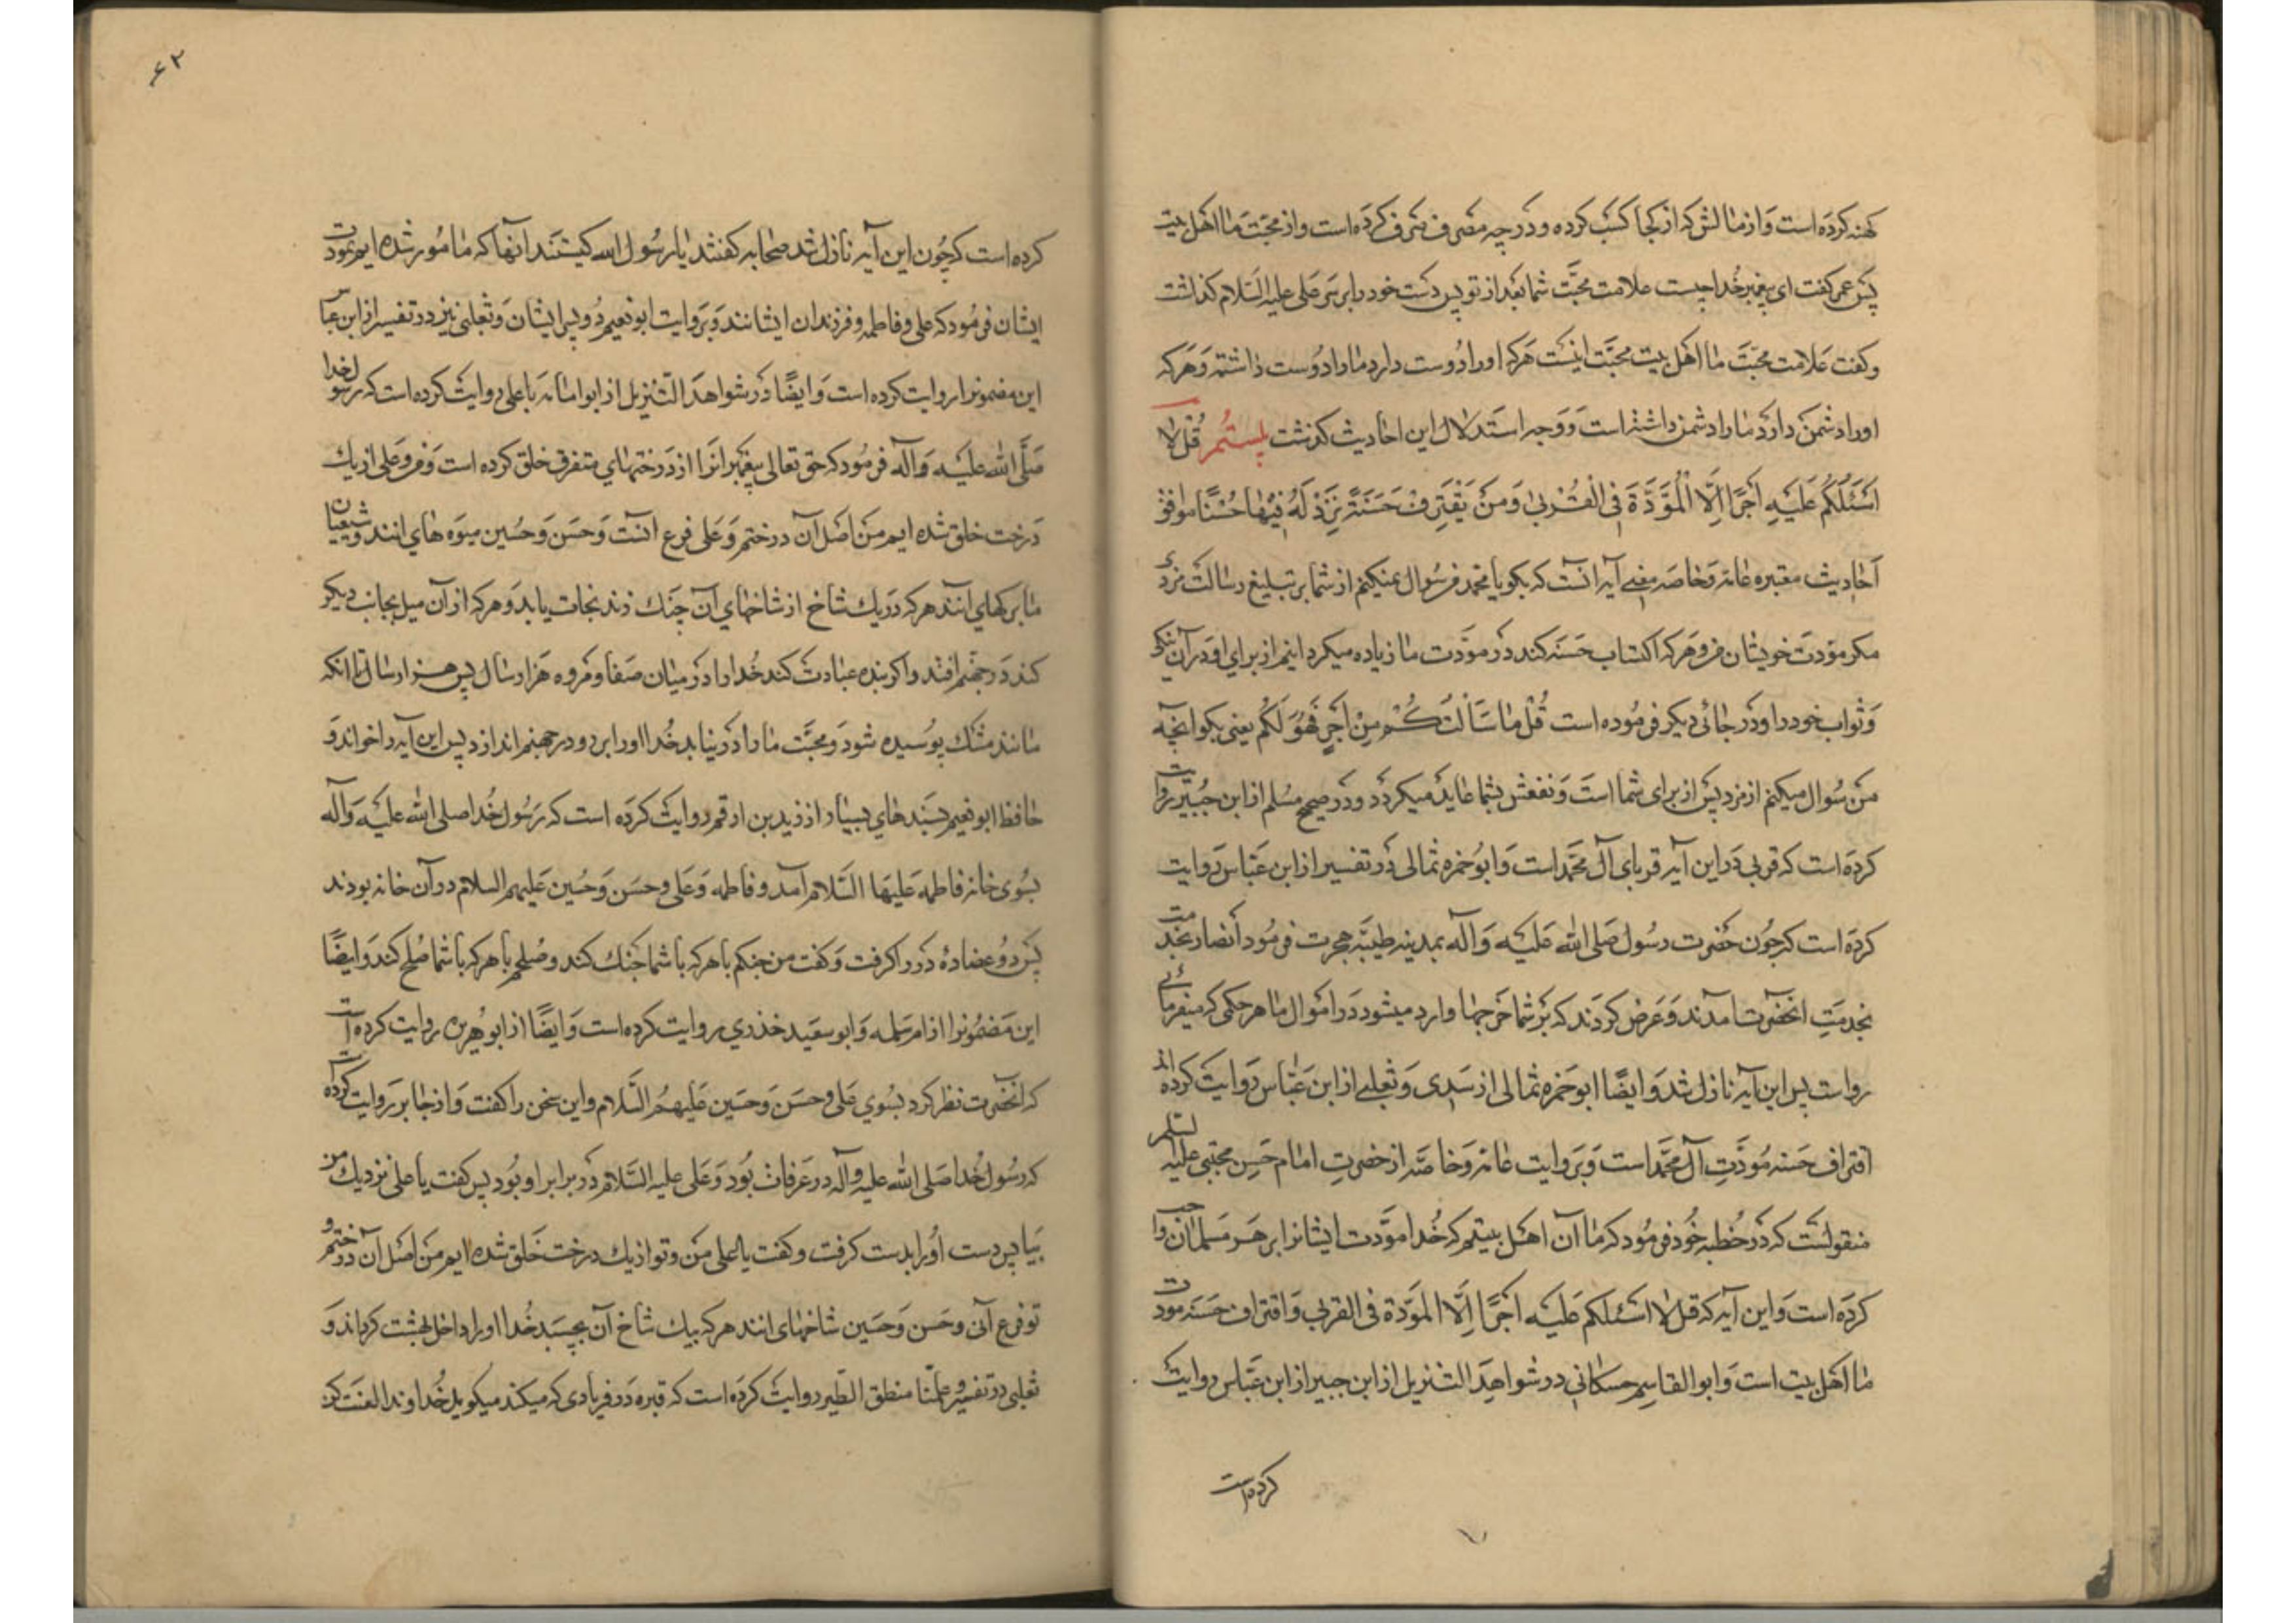 کهنه کرده است و از مالش که از کجا کسب کرده و در چه مصرف صرف کرده است و از محبت ما اهل بیت
پس عمر گفت ای پیغمبر خدا چیست علامت محبّت شما بعد از تو پس دست خود را بر سر علی علیه السّلام گذاشت
و گفت علامت محبّت ما اهل بیت محبّت اینست هرکه او را دوست دارد ما را دوست داشته و هرکه
او را دشمن دارد ما را دشمن داشته است و وجه استدلال این احادیث گذشت بیستم قُل لا
اَسْئَلُکُم عَلَیهِ اَجْرًا اِلَّا الْمَوَدَّةَ فِی الْقُرْبیٰ وَمَنْ یَقْتَرِفْ حَسَنَةً نَزِدْ لَهُ فِیْهٰا حُسْنًا موافق
احادیث معتبره عامه و خاصه معنی آیه آنست که بگو یا محمد من سوال نمیکنم از شما بر تبلیغ رسالت مزدی
مکر مودّت خویشان من و هرکه اکتساب حسنه کند در مودّت ما زیاده میکردانیم از برای او در آن نیکی
و ثواب خود را و در جائی دیکر فرموده است قُلْ مٰا سَأَلْتُکُمْ مِنْ اَجْرٍ فَهُوَ لَکُم یعنی بکو آنچه
من سوال میکنم از مزد پس از برای شما است و نفعش بشما عاید میکردد و در صحیح مسلم از ابن جُبَیر روایت
کرده است که قربی در این آیه قربای آل محمّد است و ابو حمزه ثمالی در تفسیر از ابن عبّاس روایت
کرده است که چون حضرت رسول صلی الله علیه و آله بمدینه طیبّه هجرت فرمود انصار بخدمت
بخدمتِ آنحضرت آمدند و عرض کردند که بر شما خرجها وارد میشود در اموال ما هر حکمی که میفرمائی
رواست پس این آیه نازل شد و ایضًا ابو حمزه ثمالی از سدی و ثعلبی از ابن عبّاس روایت کرده اند
اقتراف حسنه مودّتِ آل محمّد است و بروایت عامه و خاصّه از حضرتِ امام حَسن مجتبی علیه السّلم
منقولست که در خُطبه خُود فرمود که ما آن اهل بیتیم که خُدا مودّت ایشانرا بر هر مسلمان واجب
کرده است و این آیه که قل لا اسئلکم علیه اجرًا اِلَّا المودّة فی القربی و اقتراف حسنه مودت
ما اهل بیت است و ابو القاسم حسکانی در شواهد التنزیل از ابن جبیر از ابن عبّاس روایت
کرده است
۶۲
کرده است که چُون این آیه نازل شد صحابه کفتند یا رسُول الله کیستند آنها که مامُور شده ایم بمودت
ایشان فرمُود که علی و فاطمه و فرزندان ایشانند و بروایت ابو نعیم دو پسر ایشان و ثعلبی نیز در تفسیر از ابن عباس
این مضمونرا روایت کرده است و ایضًا در شواهد التّنزیل از ابو امامه باهلی روایت کرده است که رسول خدا
صَلَّی الله علیه و آله فرمُود که حق تعالی پیغمبرانرا از درختهای متفرق خلق کرده است و من و علی از یک
درخت خلق شده ایم من اصل آن درختم و علی فرع آنست و حَسَن و حُسین میوه های آنند و شیعیان
ما برکهای آنند هرکه در یک شاخ از شاخهای آن چنک زند نجات یابد و هرکه از آن میل بجانب دیکر
کند در جهنّم افتد و اکر بنده عبادت کند خُدا را در میان صَفا و مروه هزار سال پس هزار سال تا آنکه
مانند مشک پوسیده شود و محبّت ما را در نیابد خُدا او را بر رو در جهنم اندازد پس این آیه را خواند و
حافظ ابو نعیم بسَند های بسیار از زید بن ارقم روایت کرده است که رسُول خُدا صلی الله علیه و آله
بسُوی خانه فاطمه علیها السّلام آمد و فاطمه و علی و حسَن و حُسین علیهم السلام در آن خانه بودند
پس دو عضاده در را کرفت و کفت من جنکم با هرکه با شما جنک کند و صُلحم با هرکه با شما صُلح کند و ایضًا
این مضمُونرا از ام سلمه و ابو سعید خذری روایت کرده است و ایضًا از ابو هُریره روایت کرده است
که آنحضرت نظر کرد بسُوی علی و حسَن و حُسَین عَلیهمُ السَّلام و این سخن را کفت و از جابر روایت کرده است
که رسُول خُدا صَلی الله علیه و آله در عرفات بُود و علی علیه السَّلام در برابر او بُود پس کفت یا علی نزدیک من
بیا پس دست اُو را بدست کرفت و کفت یا علی من و تو از یک درخت خلق شده ایم من اصل آن درختم و
تو فرع آنی و حَسن و حُسَین شاخهای آنند هرکه بیک شاخ آن بچسبد خُدا او را داخل بهشت کرداند و
ثعلبی در تفسیر و عُلّمنا منطق الطیر روایت کرده است که قبره در فریادی که میکند میکوید خُداوندا لعنت کن